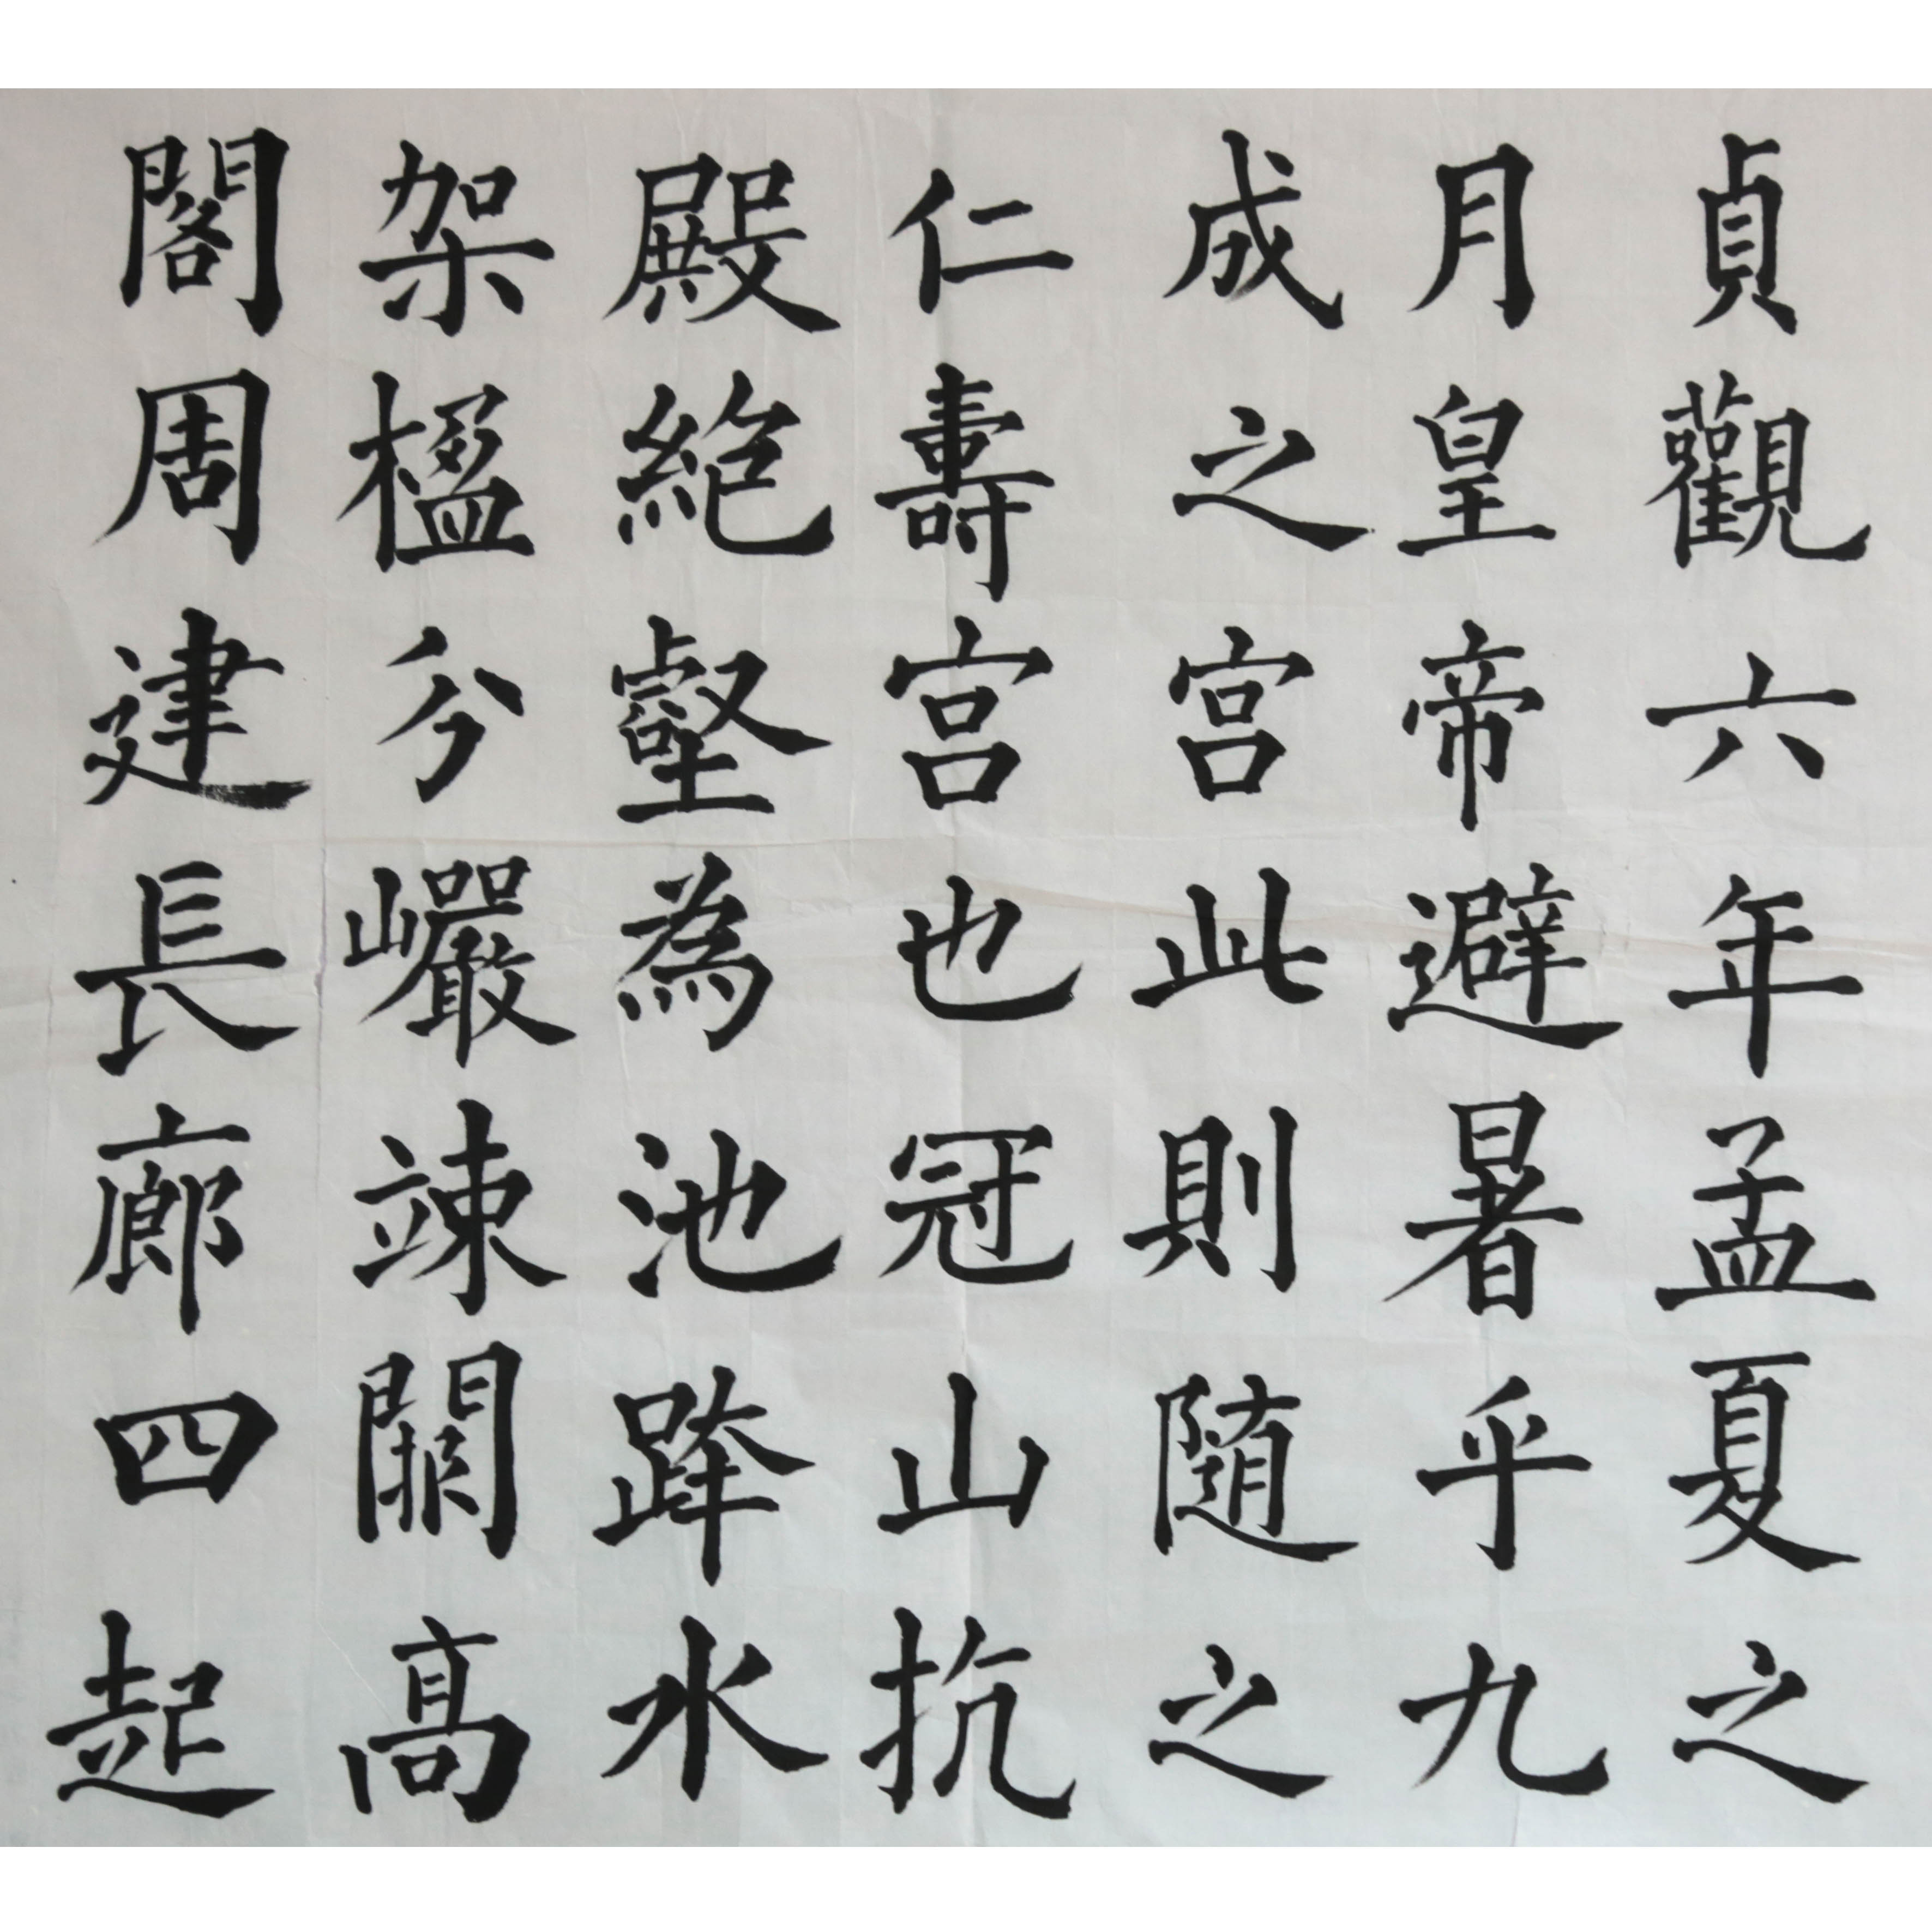 貞觀六年孟夏之
月皇帝避暑乎九
成之宮此則隨之
仁壽宮也冠山抗
殿絕壑為池跨水
架楹分巖竦闕高
閣周建長廊四起